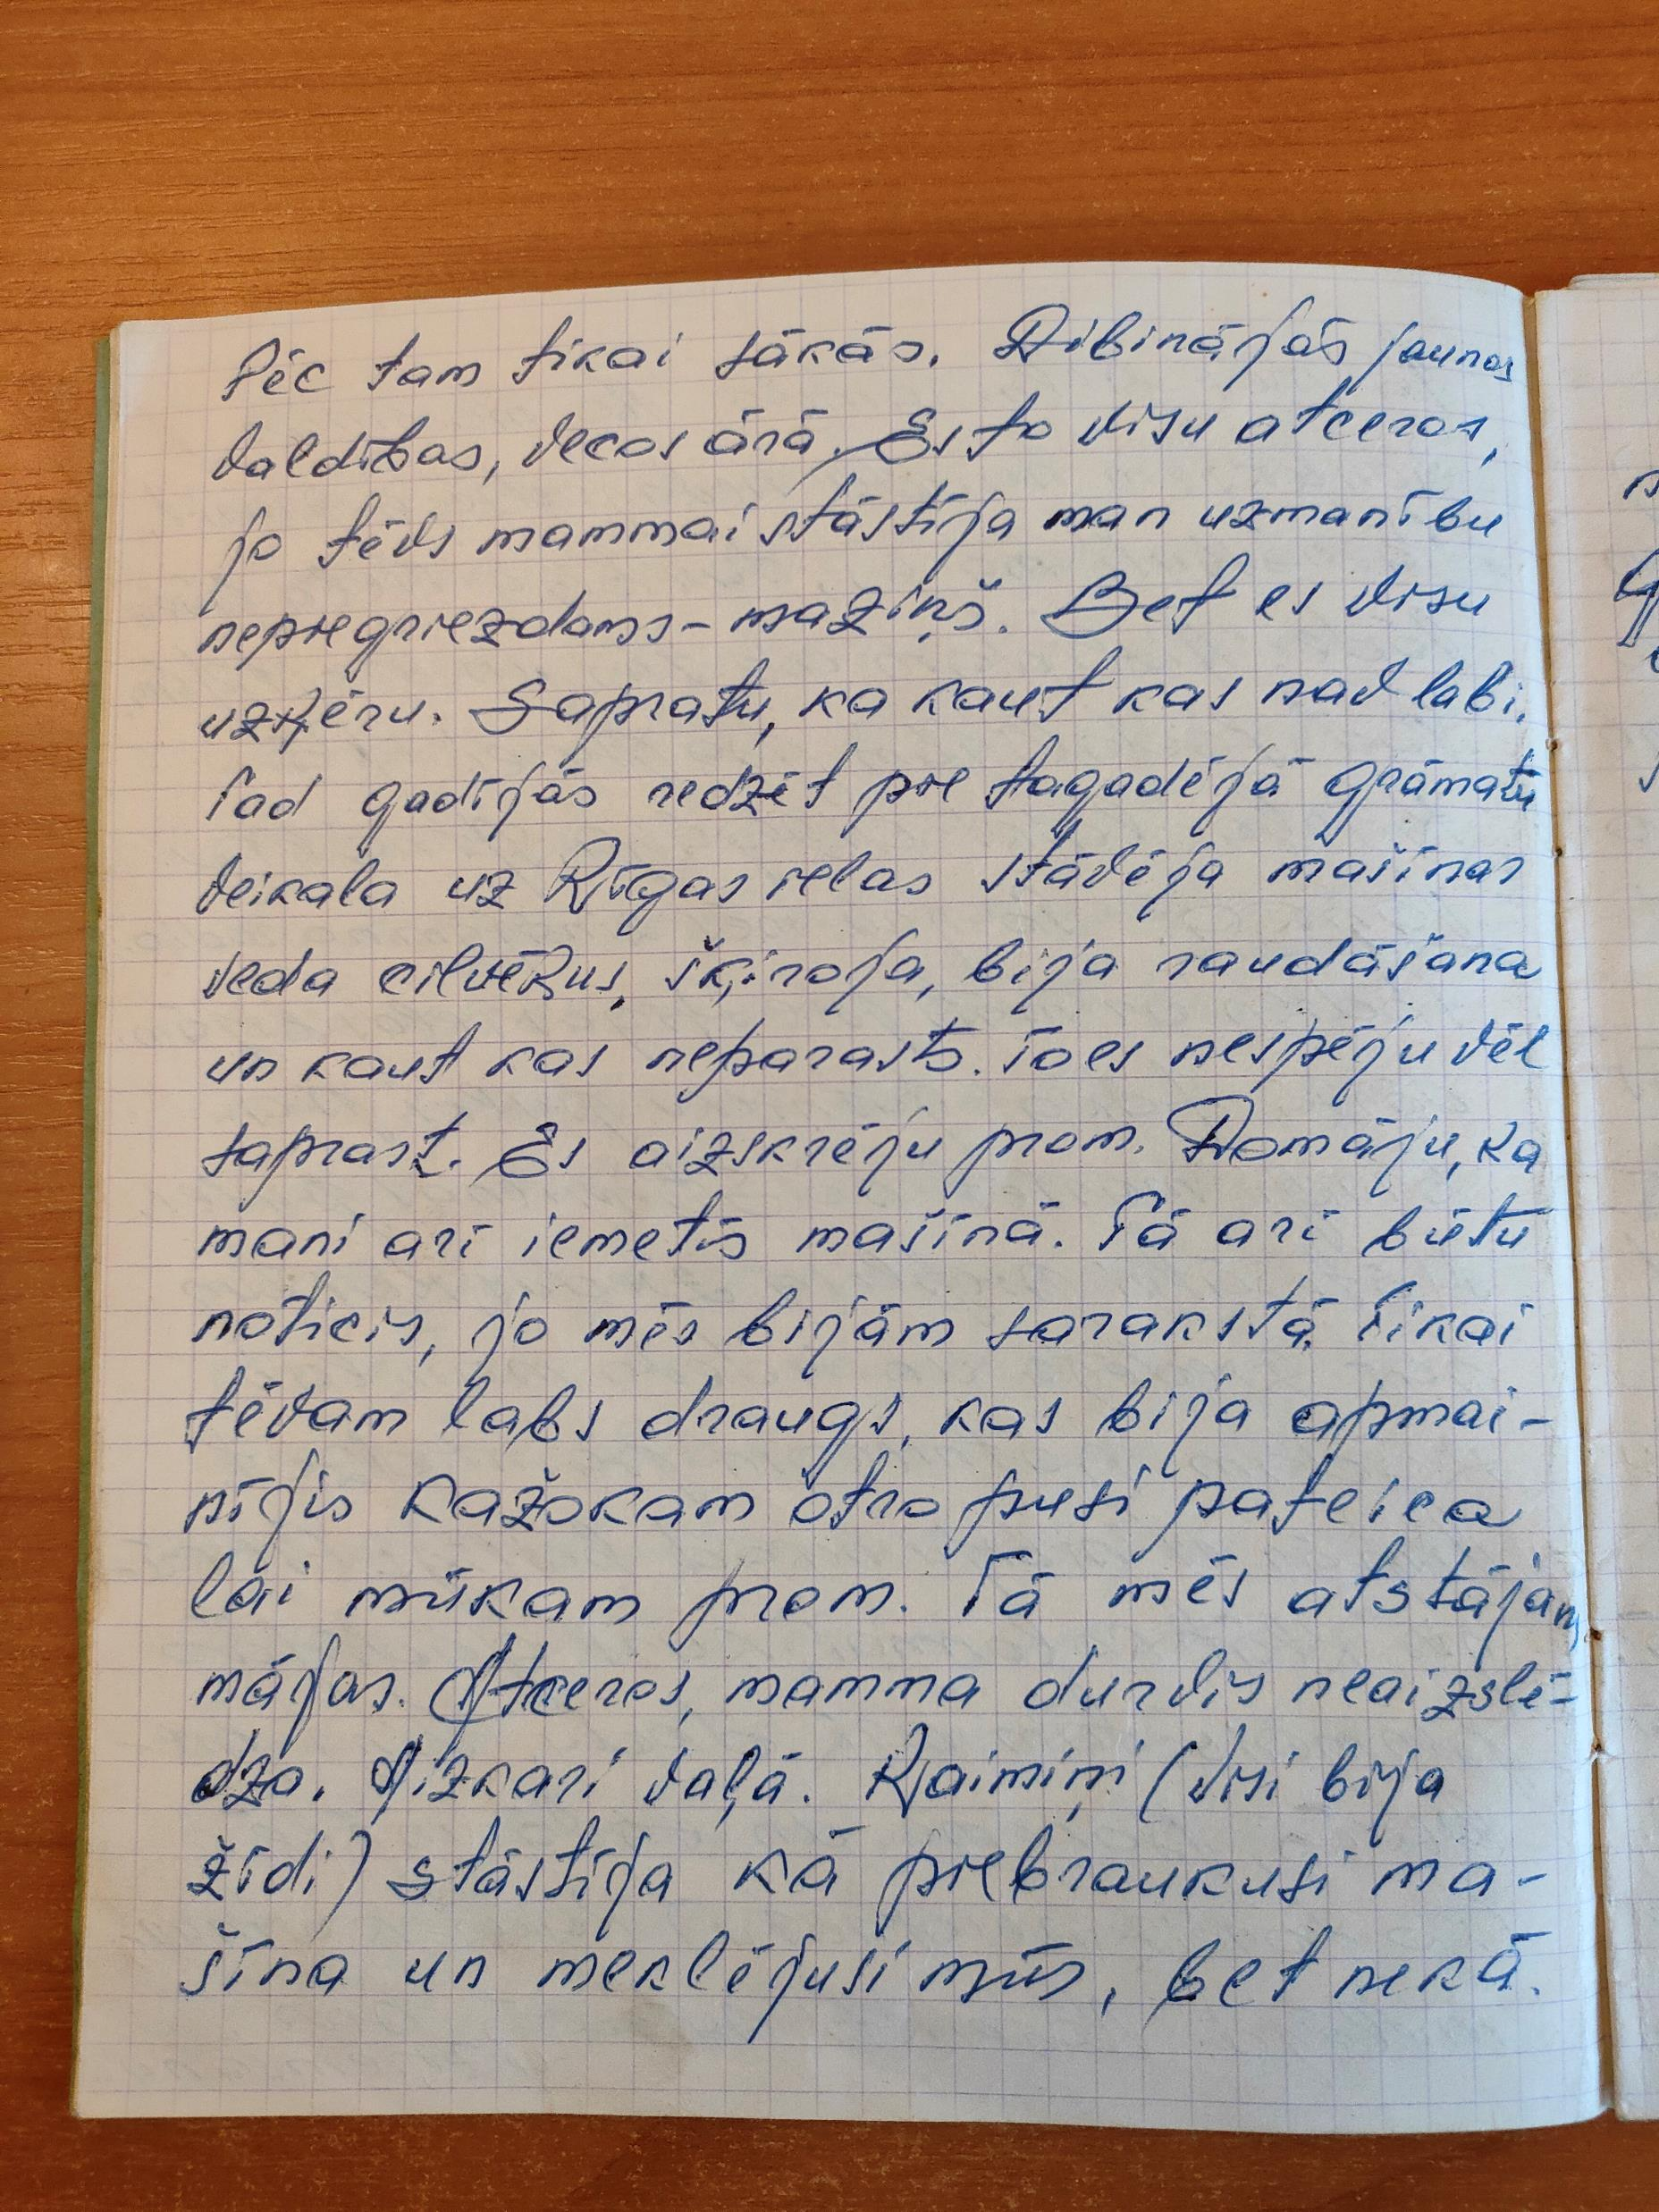 Pēc tam tikai sākās. Dibinājās jaunas
valdības, vecos ārā. Es to visu atceros,
jo tēvs mammai stāstīja man uzmanību
nepiegriezdams - maziņš. Bet es visu
uzķēru. Sapratu, ka kaut kas nav labi.
Tad gadījās redzēt pie tagadējā grāmatu
veikala uz Rīgas ielas stāvēja mašīnas
veda cilvēkus, šķiroja, bija raudāšana
un kaut kas neparasts. To es nespēju vēl
saprast. Es aizskrēju prom. Domāju, ka
mani arī iemetīs mašīnā. Tā arī būtu
noticis, jo mēs bijām sarakstā. Tikai
tēvam labs draugs, kas bija apmai-
nījis kažokam otro pusi pateica
lai mūkam prom. Tā mēs atstājām
mājas. Atceros, mamma durvis neaizslē-
dza. Aizkari vaļā. Kaimiņi (visi bija
židi) stāstīja kā piebraukusi ma-
šīna un meklējusi mūs, bet nekā.